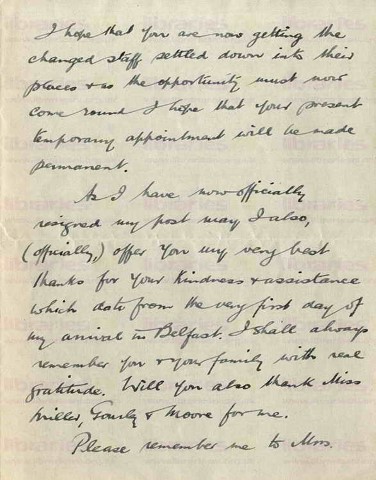 I hope that you are now getting the
changed staff settled down into their
places & as the opportunity must now
come round I hope that your present
temporary appointment will be made
permanent.
As I have now officially
resigned my post may I also,
(officially,) offer you my very best
thanks for your kindness & assistance
which date from the very first day of
my arrival in Belfast. I shall always
remember you & your family with real
gratitude. Will you also thank Miss
Miller, Gourly & Moore for me.
Please remember me to Mrs.